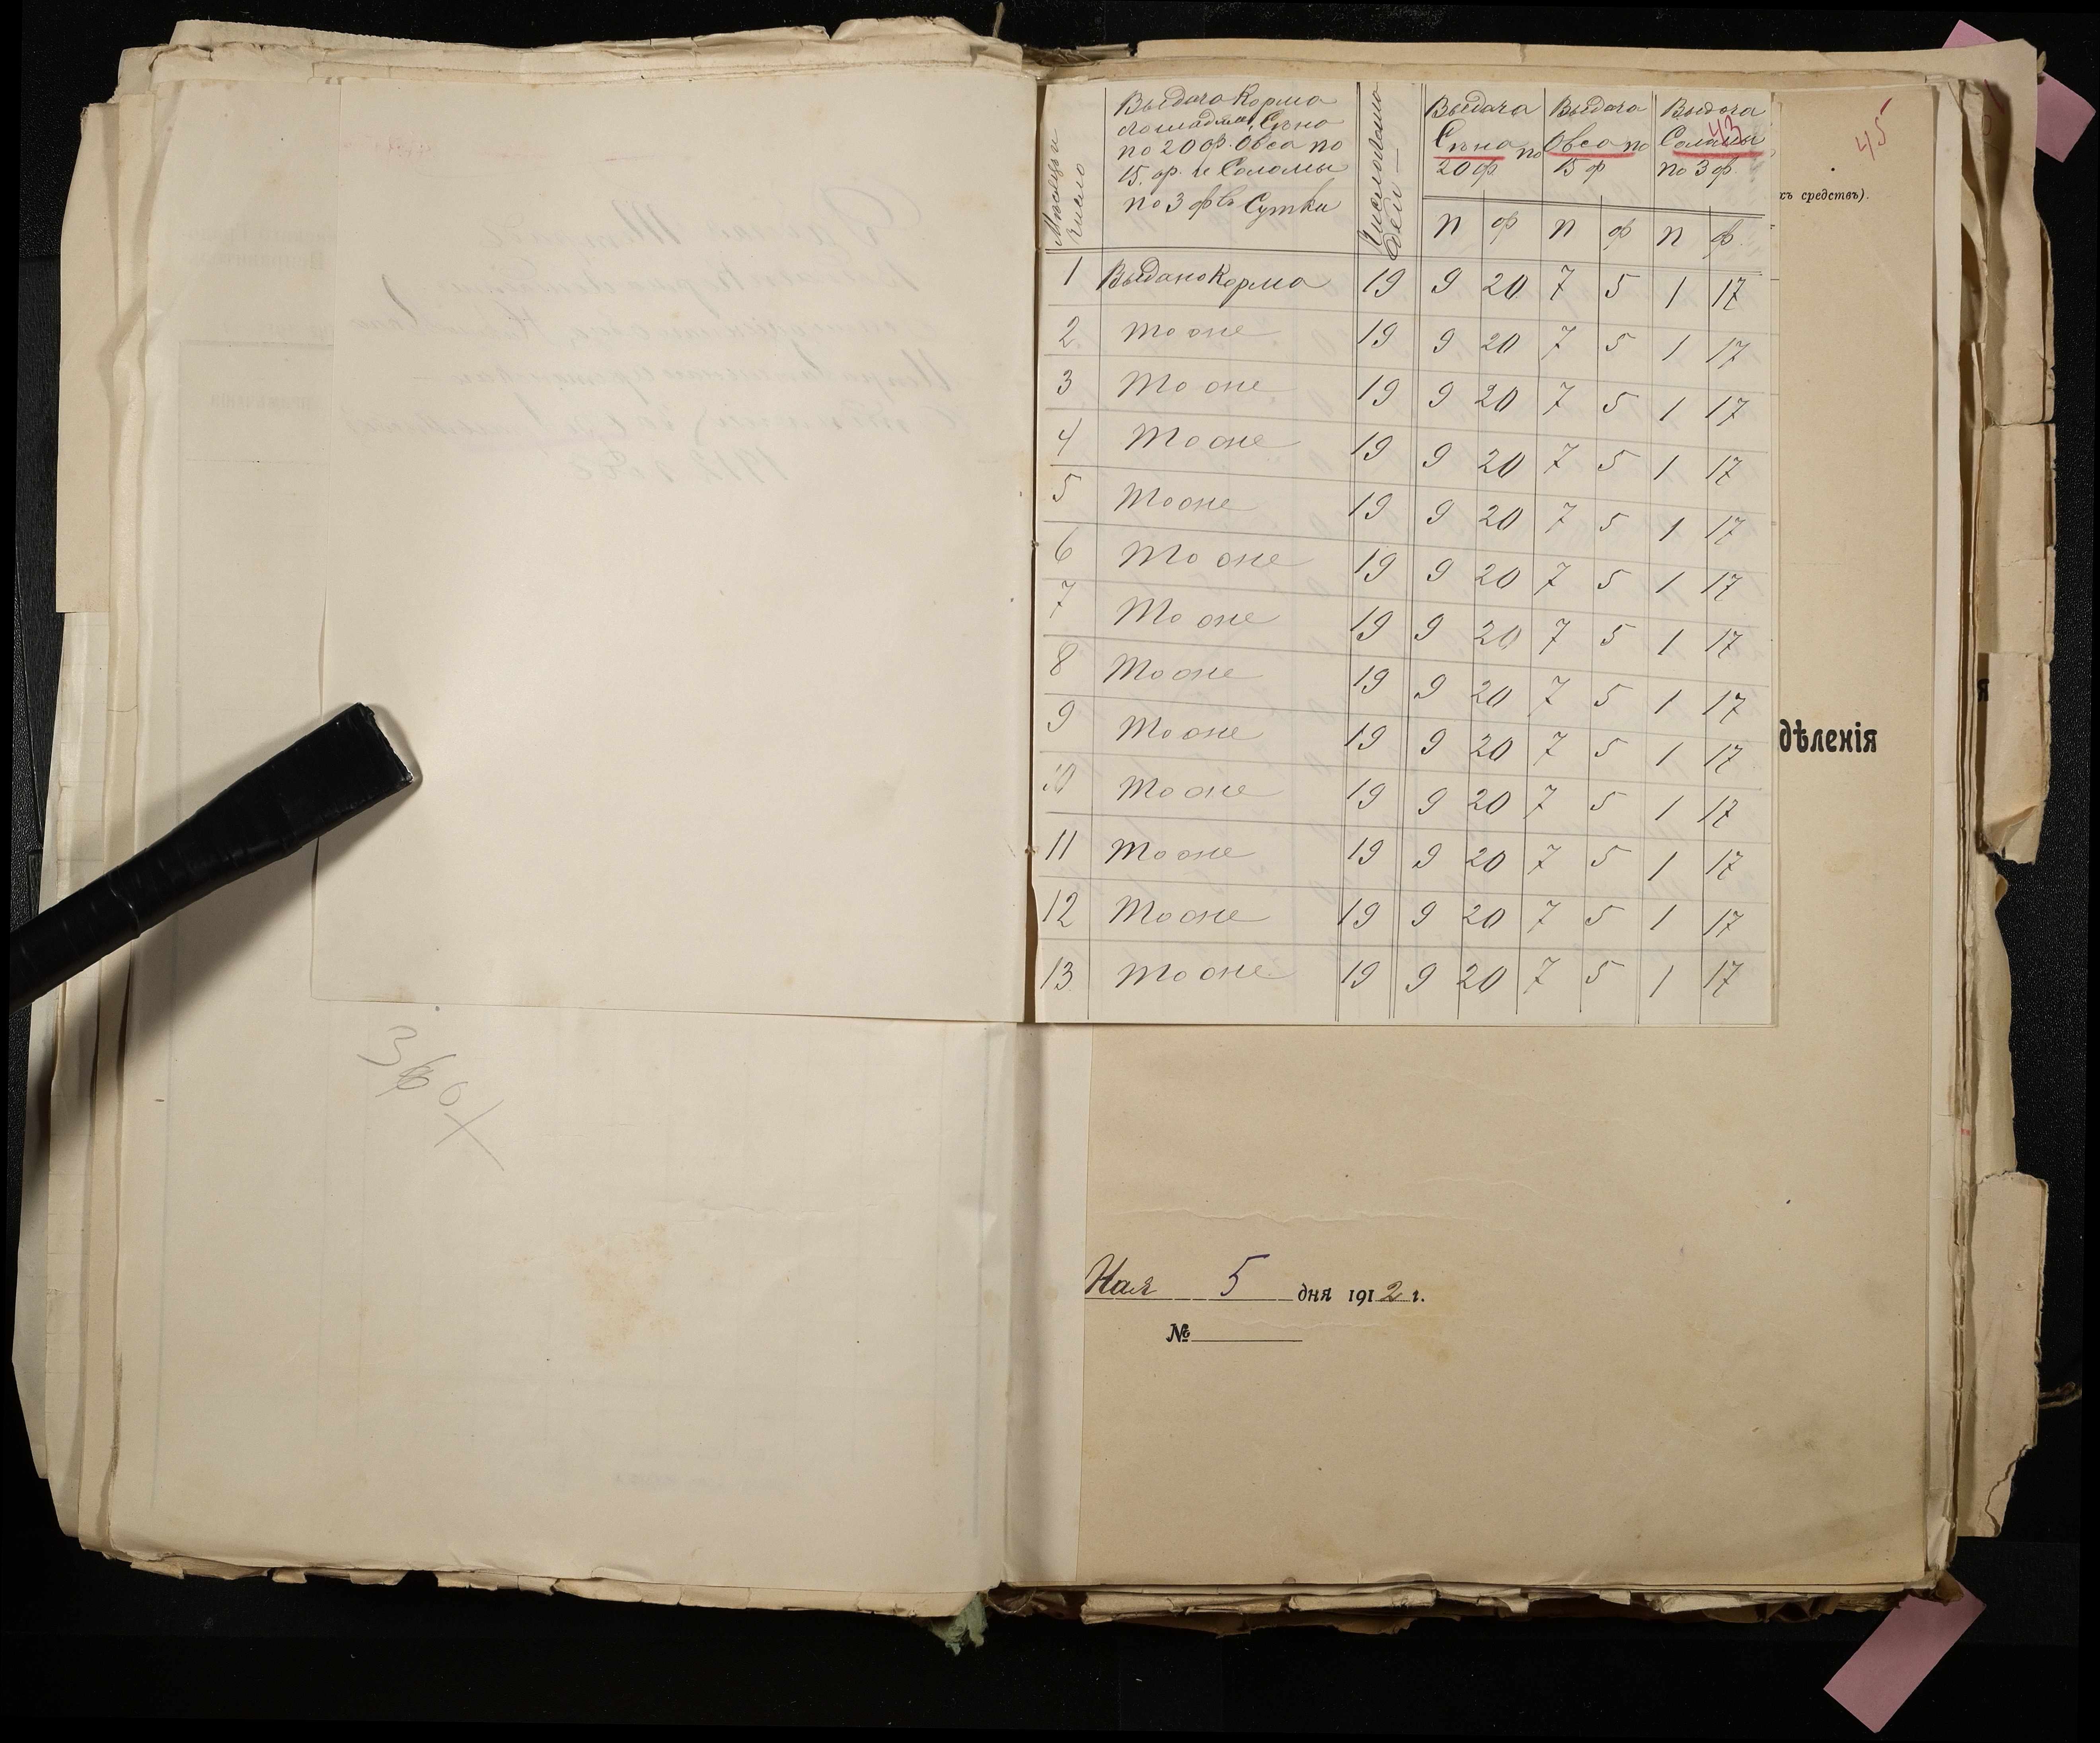 45
43
Мѣсяцъ и число
Выдача Корма
лошадямъ, Сѣна
по 20 ф. Овса по
15. ф. и Соломы
по 3 ф въ Сутки
Число лошадей
Выдача
Сѣна по
20 ф
Выдача
Овса по
15 ф
Выдача
Соломы
по 3 ф.
п ф п ф п ф.
1 Выдано Корма 19 9 20 7 5 1 17
2 тоже 19 9 20 7 5 1 17
3 тоже 19 9 20 7 5 1 17
4 тоже 19 9 20 7 5 1 17
5 тоже 19 9 20 7 5 1 17
6 тоже 19 9 20 7 5 1 17
7 тоже 19 9 20 7 5 1 17
8 тоже 19 9 20 7 5 1 17
9 тоже 19 9 20 7 5 1 17
10 тоже 19 9 20 7 5 1 17
11 тоже 19 9 20 7 5 1 17
12 тоже 19 9 20 7 5 1 17
13 тоже 19 9 20 7 5 1 17
хъ средствъ).
дѣленія
Мая 5 дня 1912 г.
№